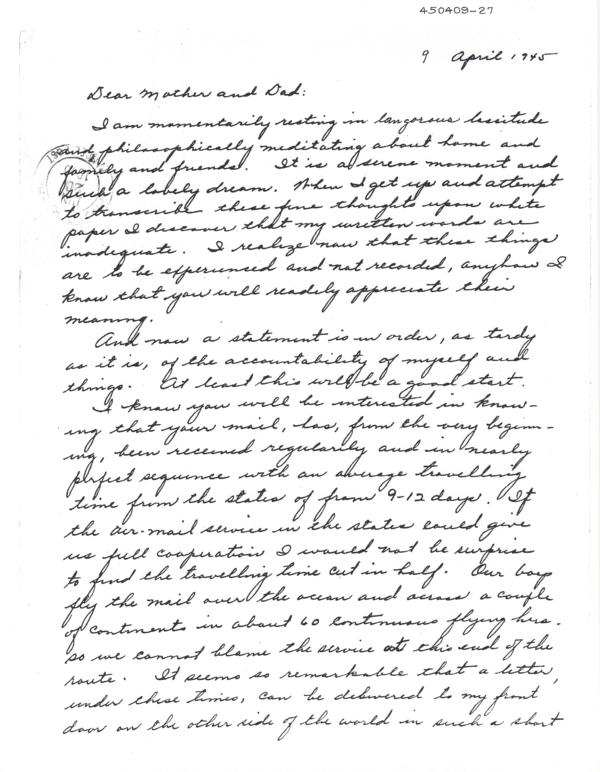 450409-27
9 April 1945
Dear Mother and Dad:
I am momentarily resting in langorous lassitude
and philosophically meditating about home and
family and friends. It is a serene moment and
such a lovely dream. When I get up and attempt
to transcribe these fine thoughts upon white
paper I discover that my written words are
inadequate. I realize now that these things
are to be experienced and not recorded, anyhow I
know that you will readily appreciate their
meaning.
And now a statement is in order, as tardy
as it is, of the accountability of myself and
things. At least this will be a good start.
I know you will be interested in know-
ing that your mail, has, from the very beginn-
ing, been received regularily and in nearly
perfect sequence with an average travelling
time from the states of from 9-12 days. If
the air-mail service in the states could give
us full cooperation I would not be surprise
to find the travelling time cut in half. Our boys
fly the mail over the ocean and across a couple
of continents in about 60 continuous flying hrs.
so we cannot blame the service at this end of the
route. It seems so remarkable that a letter,
under these times, can be delivered to my front
door on the other side of the world in such a short